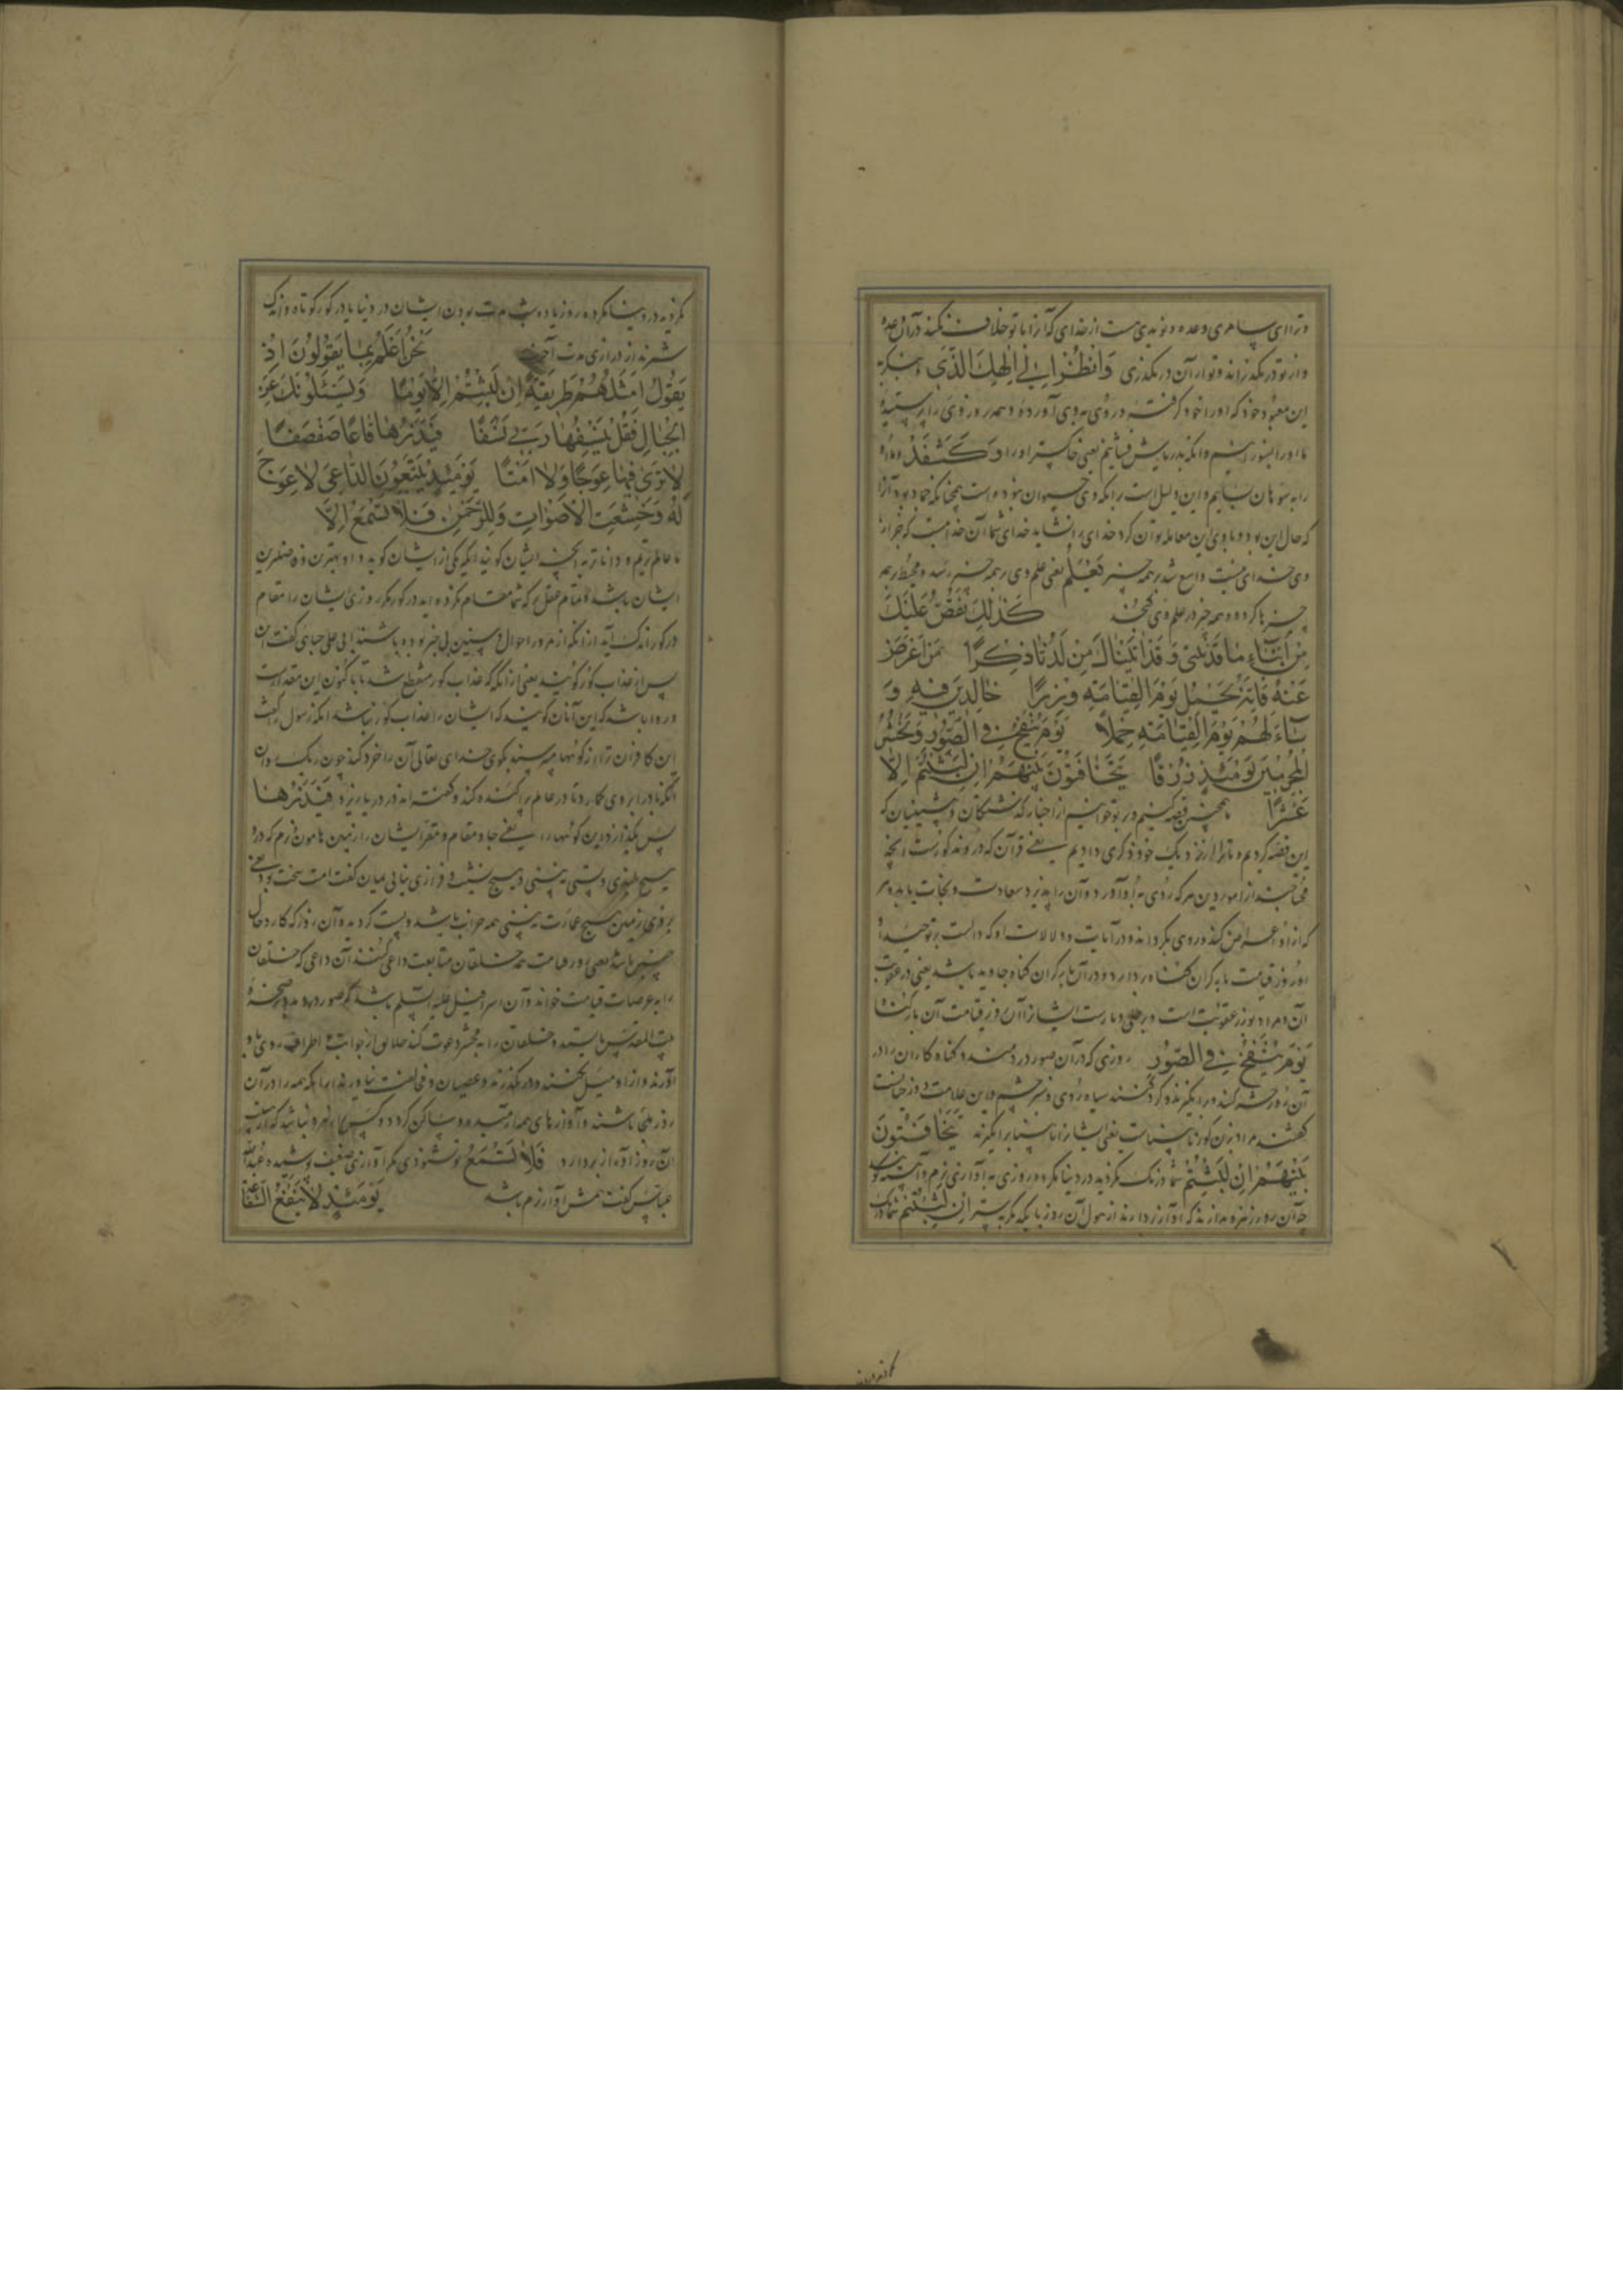 و ترا ای سامری وعده و نویدی هست از خدای که آنرا با تو خلاف نکند در آن وعده
و از تو در نگذراند و تو از آن در نگذری وَانْظُرْ اِلٰی اِلٰهِکَ الَّذِی و بنگر به
این معبود خود که او را خود گرفته و روی به وی آورده و همه روز وی را پرستیده
ما او را بسوزانیم و آنکه بدریایش فشانیم یعنی خاکستر او را و
را به سوهان بساییم و این دلیل است بر آنکه وی حیوان نبوده است همچنانکه جماد بود آنرا
که حال این بود و با وی این معامله توان کرد خدای را نشاید خدای شما آن خداست که جز از
وی خدای نیست واسع شد بر همه چیز یعنی علم وی بر همه چیز رسد و محیط بر همه
چیزها کرد و همه چیز در علم وی گنجد کَذٰلِکَ نَقُصُّ عَلَیْکَ
مِنْ اَنْبَاءِ مَا قَدْ سَبَقَ وَقَدْ اٰتَیْنَاکَ مِنْ لَدُنَّا ذِکْرًا مَنْ اَعْرَضَ
عَنْهُ فَاِنَّهُ یَحْمِلُ یَوْمَ الْقِیَامَةِ وِزْرًا خَالِدِینَ فِیهِ وَ
سَاءَ لَهُمْ یَوْمَ الْقِیَامَةِ حِمْلًا یَوْمَ یُنْفَخُ فِی الصُّورِ وَنَحْشُرُ
الْمُجْرِمِینَ یَوْمَئِذٍ زُرْقًا یَتَخَافَتُونَ بَیْنَهُمْ اِنْ لَبِثْتُمْ اِلَّا
عَشْرًا همچنین قصه کنیم و بر تو خوانیم از اخبار گذشتگان و پیشینیان که
این قصه کردیم و ما ترا از نزدیک خود ذکری دادیم یعنی قرآن که در او مذکورست آنچه
محتاجند از امور دین هر که روی به او آورد و آن را پذیرد سعادت و نجات یابد و هر
که از او اعراض کند و روی بگرداند و در آیات و دلالات او که دالست بر توحید
او روز قیامت بار گران گناه بردارد و در آن بار گران گناه جاوید باشد یعنی در عقوبت
آن و مراد بوزر عقوبت است و بد حملی و بارست ایشانرا آن روز قیامت آن بار گناه
یَوْمَ یُنْفَخُ فِی الصُّورِ روزی که در آن صور در دمند و گناه کاران را در
آن روز حشر کنند و برانگیزند و گرد کنند سیاه روی و سبز چشم و این علامت دوزخیانست
گفتند مراد بزرق کور نابینایست یعنی ایشانرا نابینا برانگیزند یَتَخَافَتُونَ
بَیْنَهُمْ اِنْ لَبِثْتُمْ شما درنگ نکردید در دنیا مگر ده روزی به آوازی نرم و آهسته گویند
چه آن روز زهره ندارند که آواز بردارند از هول آن روز با یکدیگر به سر اِنْ لَبِثْتُمْ شما درنگ
نکردید در دنیا مگر ده روز یا ده شب مدت بودن ایشان در دنیا یا در گور کوتاه و اندک
شمرند از درازی مدت آخرت نَحْنُ اَعْلَمُ بِمَا یَقُولُونَ اِذْ
یَقُولُ اَمْثَلُهُمْ طَرِیقَةً اِنْ لَبِثْتُمْ اِلَّا یَوْمًا وَیَسْئَلُونَکَ عَنِ
الْجِبَالِ فَقُلْ یَنْسِفُهَا رَبِّی نَسْفًا فَیَذَرُهَا قَاعًا صَفْصَفًا
لَا تَرٰی فِیهَا عِوَجًا وَلَا اَمْتًا یَوْمَئِذٍ یَتَّبِعُونَ الدَّاعِیَ لَا عِوَجَ
لَهُ وَخَشَعَتِ الْاَصْوَاتُ لِلرَّحْمٰنِ فَلَا تَسْمَعُ اِلَّا
ما عالم‌تریم و داناتر به آنچه ایشان گویند آنگه که یکی از ایشان گوید و او بهترین و فاضلترین
ایشان باشد و تمام عقل‌تر که شما مقام نکرده‌اید در گور مگر روزی ایشان را مقام
در گور اندک آید از آنکه از مرور احوال پیشین بی خبر بوده باشند ابی علی جبایی گفت این
پس از عذاب گور گویند یعنی از آنگه که عذاب گور منقطع شد تا باکنون این مقدارست
و روا باشد که این آنان گویند که ایشان را عذاب گور نباشد آنکه رسول را گفت
این کافران ترا از کوهها می‌پرسند بگوی خدای تعالی آن را خرد کند چون ریگ روان
آنگه باد را بر وی گمارد تا در عالم پراکنده کند و گفته‌اند در دریا ریزد فَیَذَرُهَا
پس بگذارد این کوهها را یعنی جا و مقام و مقر ایشان را زمین هامون نرم که در او
هیچ بلندی و پستی نبینی و هیچ نشیب و فرازی نیابی میان گفت امت سخت بود یعنی
بر روی زمین هیچ عمارت نبینی همه خراب باشد و پست کرده و آن روز که کار و حال
چنین باشد یعنی روز قیامت همه خلقان متابعت داعی کنند آن داعی که خلقان
را به عرصات قیامت خواند و آن اسرافیل علیه السلم باشد که صور دردمد و بر صخرهٔ
بیت المقدس بایستد و خلقان را به محشر دعوت کند خلایق از جوانب و اطراف روی باو
آورند و از او میل نکنند و در نگذرند و عصیان و مخالفت نیاورند از برای آنکه همه را در آن
روز ملجأ باشند و آوازهای همه آرمیده و ساکن گردد و کس را زهره نباشد که از هیبت
آن روز آواز بردارد فَلَا تَسْمَعُ تو نشنوی مگر آوازی ضعیف پوشیده عبدالله
عباس گفت همس آواز نرم باشد یَوْمَئِذٍ لَا تَنْفَعُ الشَّفَاعَةُ